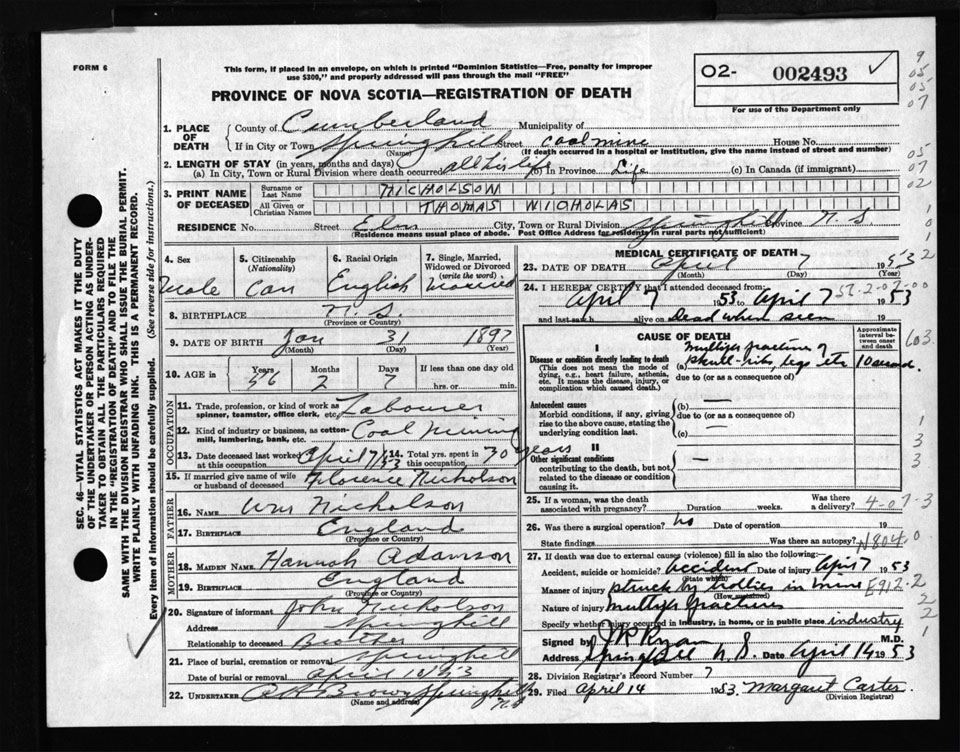 FORM 6
This form, if placed in an envelope, on which is printed "Dominion Statistics—Free, penalty for improper
use $300," and properly addressed will pass through the mail "FREE"
PROVINCE OF NOVA SCOTIA—REGISTRATION OF DEATH
02- 002493 ✓
For use of the Department only
9
05
05
07
05
07
02
1
0
1
2
1. PLACE OF DEATH
County of Cumberland Municipality of
If in City or Town Springhill Street coal mine House No.
(Name) (If death occurred in a hospital or institution, give the name instead of street and number)
2. LENGTH OF STAY (in years, months and days)
(a) In City, Town or Rural Division where death occurred all his life (b) In Province Life (c) In Canada (if immigrant)
3. PRINT NAME OF DECEASED
Surname or Last Name NICHOLSON
All Given or Christian Names THOMAS NICHOLAS
RESIDENCE No. Street Elm City, Town or Rural Division Springhill Province N. S.
(Residence means usual place of abode. Post Office Address for residents in rural parts not sufficient)
4. Sex
male
5. Citizenship (Nationality)
Can
6. Racial Origin
English
7. Single, Married, Widowed or Divorced (write the word)
Married
8. BIRTHPLACE N. S.
(Province or Country)
9. DATE OF BIRTH Jan 31 1897
(Month) (Day) (Year)
10. AGE in Years Months Days If less than one day old
56 2 7 hrs. or min.
OCCUPATION
11. Trade, profession, or kind of work as spinner, teamster, office clerk, etc. Labourer
12. Kind of industry or business, as cotton-mill, lumbering, bank, etc. Coal Mining
13. Date deceased last worked at this occupation April 7/53
14. Total yrs. spent in this occupation 30 years
15. If married give name of wife or husband of deceased Florence Nicholson
FATHER
16. NAME Wm Nicholson
17. BIRTHPLACE England
(Province or Country)
MOTHER
18. MAIDEN NAME Hannah Adamson
19. BIRTHPLACE England
(Province or Country)
20. Signature of informant John Nicholson
Address Springhill
Relationship to deceased Brother
21. Place of burial, cremation or removal Springhill
Date of burial or removal April 10/53
22. UNDERTAKER Brown Springhill N.S
(Name and address)
MEDICAL CERTIFICATE OF DEATH
23. DATE OF DEATH April 7 1953
(Month) (Day) (Year)
24. I HEREBY CERTIFY that I attended deceased from:
April 7 1953 to April 7 1953
57-2-07-00
and last saw h alive on Dead when seen 19
CAUSE OF DEATH
Approximate interval between onset and death
603.
I
Disease or condition directly leading to death
(This does not mean the mode of dying, e.g., heart failure, asthenia, etc. It means the disease, injury, or complication which caused death.)
(a) multiple fractures of skull-ribs, legs etc 10 second.
due to (or as a consequence of)
Antecedent causes
Morbid conditions, if any, giving rise to the above cause, stating the underlying condition last.
(b) —
due to (or as a consequence of)
(c) —
II
Other significant conditions
contributing to the death, but not related to the disease or condition causing it.
—
1
3
3
25. If a woman, was the death associated with pregnancy? Duration weeks. Was there a delivery?
4-07-3
26. Was there surgical operation? no Date of operation 19
State findings Was there an autopsy?
N804.0
27. If death was due to external causes (violence) fill in also the following:
Accident, suicide or homicide? accident Date of injury April 7 1953
(State which)
Manner of injury struck by trollies in mine
(How sustained)
E912-2
Nature of injury multiple fractures
2
2
Specify whether injury occurred in industry, in home, or in public place industry
Signed by J R Ryan M.D.
Address Springhill N S. Date April 14 1953
28. Division Registrar's Record Number 7
29. Filed April 14 1953. Margaret Carter.
(Division Registrar)
SEC. 46—VITAL STATISTICS ACT MAKES IT THE DUTY
OF THE UNDERTAKER OR PERSON ACTING AS UNDER-
TAKER TO OBTAIN ALL THE PARTICULARS REQUIRED
IN THE "REGISTRATION OF DEATH" AND TO FILE THE
SAME WITH THE DIVISION REGISTRAR WHO SHALL ISSUE THE BURIAL PERMIT.
WRITE PLAINLY WITH UNFADING INK. THIS IS A PERMANENT RECORD.
Every item of information should be carefully supplied. (See reverse side for instructions.)